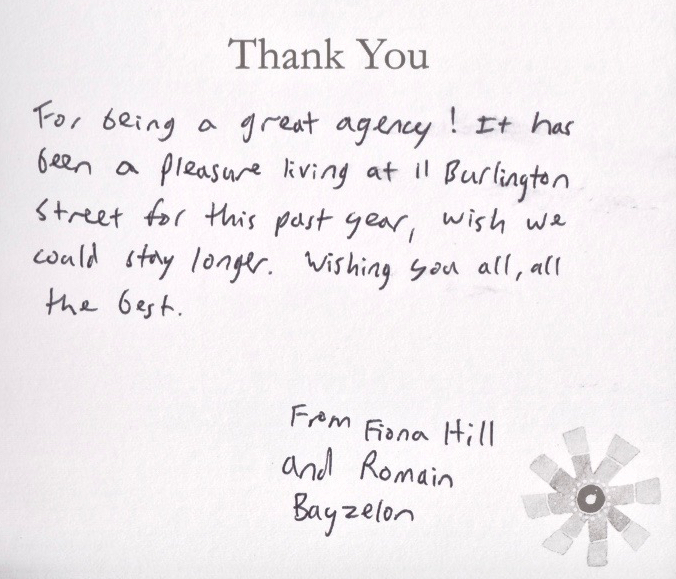 Thank You
For being a great agency! It has
been a pleasure living at 11 Burlington
Street for this past year, wish we
could stay longer. Wishing you all, all
the best.
From Fiona Hill
and Romain
Bayzelon